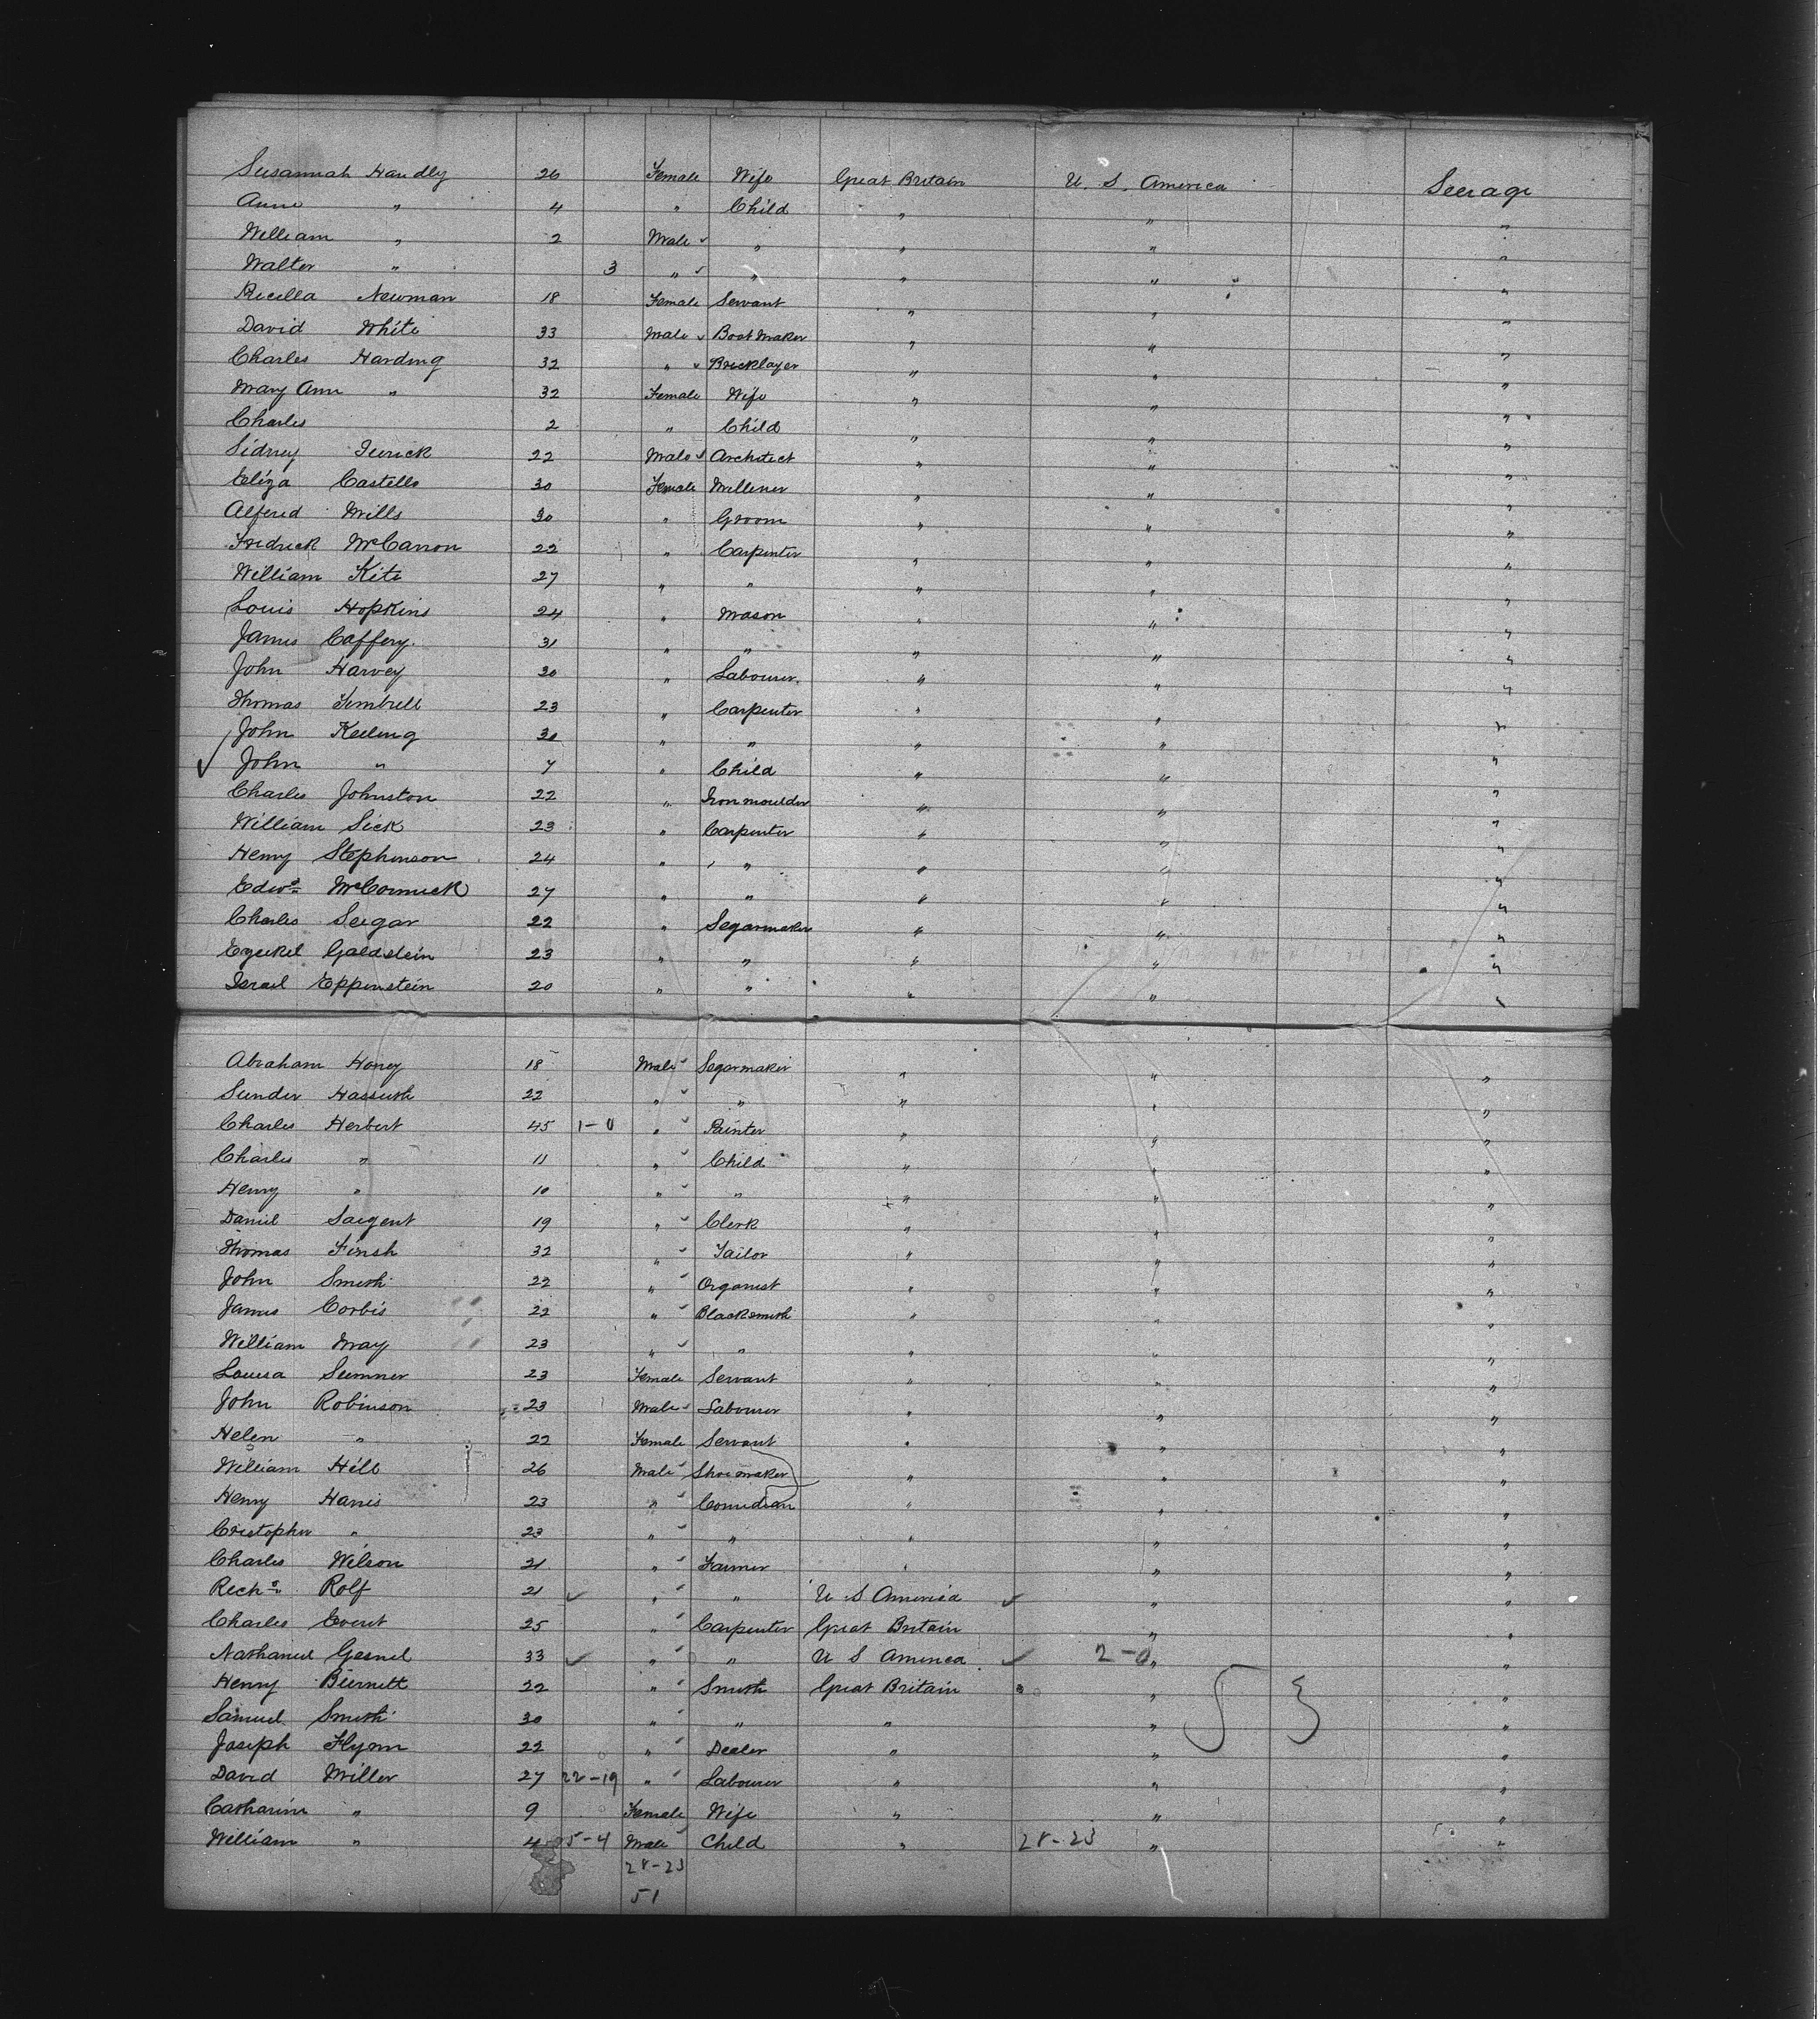 Susannah Handly 26 Female Wife Great Britain U. S. America Steerage
Anne " 4 " Child " " "
William " 2 Male " " " "
Walter " 3 " " " " "
Newman 18 Female Servant " " "
David White 33 Male Boot Maker " " "
Charles Harding 32 " Bricklayer " " "
Mary Ann " 32 Female Wife " " "
Charles 2 " Child " " "
Sidney 22 Male Architect " " "
Eliza Castello 30 Female Milliner " " "
Alfred Mills 30 " Groom " " "
Fredrick McCarron 22 " Carpenter " " "
William Kite 27 " " " " "
Louis Hopkins 24 " Mason " " "
James Caffery 31 " " " " "
John Harvey 30 " Labourer " " "
Thomas Timbrell 23 " Carpenter " " "
John Keeling 30 " " " " "
John " 7 " Child " " "
Charles Johnston 22 " Iron moulder " " "
William Sick 23 " Carpenter " " "
Henry Stephenson 24 " " " " "
Edwd McCormick 27 " " " " "
Charles Seegar 22 " Segarmaker " " "
Ezeekel Goldstein 23 " " " " "
Israel Eppenstein 20 " " " " "
Abraham Honey 18 Male Segarmaker " " "
22 " " " " "
Charles Herbert 45 1-0 " Painter " " "
Charles " 11 " Child " " "
Henry " 10 " " " " "
Daniel Sargent 19 " Clerk " " "
Thomas Finsh 32 " Tailor " " "
John Smith 22 " Organist " " "
James Corbis 22 " Blacksmith " " "
William May 23 " " " " "
Louisa Sumner 23 Female Servant " " "
John Robinson 23 Male Labourer " " "
Helen " 22 Female Servant " " "
William Hill 26 Male Shoemaker " " "
Henry Harris 23 " Comedian " " "
Cristopher " 23 " " " " "
Charles Wilson 21 " Farmer " " "
Richd Rolf 21 " " U S America " "
Charles Everet 25 " Carpenter Great Britain " "
Nathaniel Gesnel 33 " " U S America 2-0 " "
Henry Burnett 22 " Smith Great Britain " "
Samuel Smith 30 " " " " "
Joseph Flynn 22 " Dealer " " "
David Miller 27 22-19 " Labourer " " "
Catharine " 9 Female Wife " " "
William " 4 5-4 Male Child " 28-23 " "
28-23
51